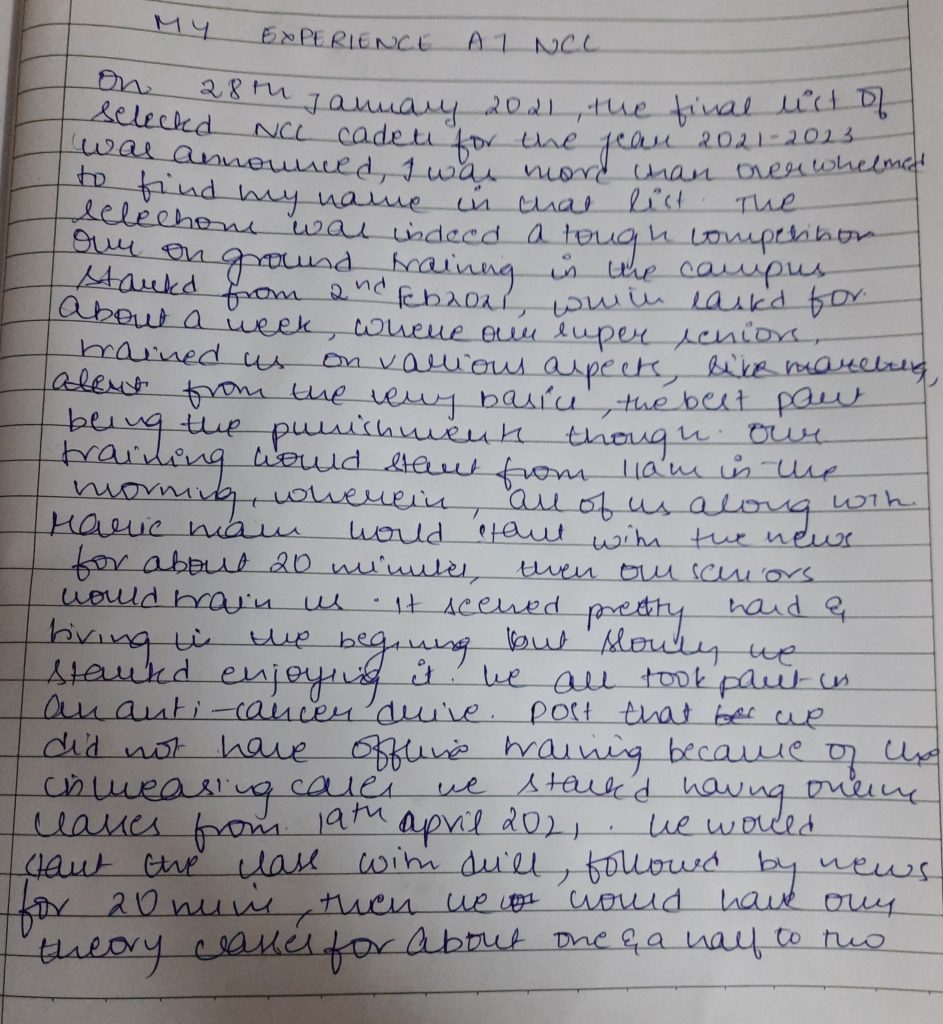 MY EXPERIENCE AT NCC
On 28th January 2021, the final list of
selected NCC cadets for the year 2021-2023
was announced, I was more than overwhelmed
to find my name in that list. The
selections was indeed a tough competition
Our on ground training in the campus
started from 2nd Feb 2021, which lasted for
about a week, where our super seniors,
trained us on various aspects, like marching,
from the very basics, the best part
being the punishments though. Our
training would start from 11am in the
morning, wherein, all of us along with
mam would start with the news
for about 20 minutes, then our seniors
would train us. It seemed pretty hard &
tiring in the beginning but slowly we
started enjoying it. We all took part in
an anti-cancer drive. Post that we
did not have offline training because of the
increasing cases we started having online
classes from 19th april 2021. We would
start the class with drill, followed by news
for 20 mins, then we would have our
theory classes for about one & a half to two